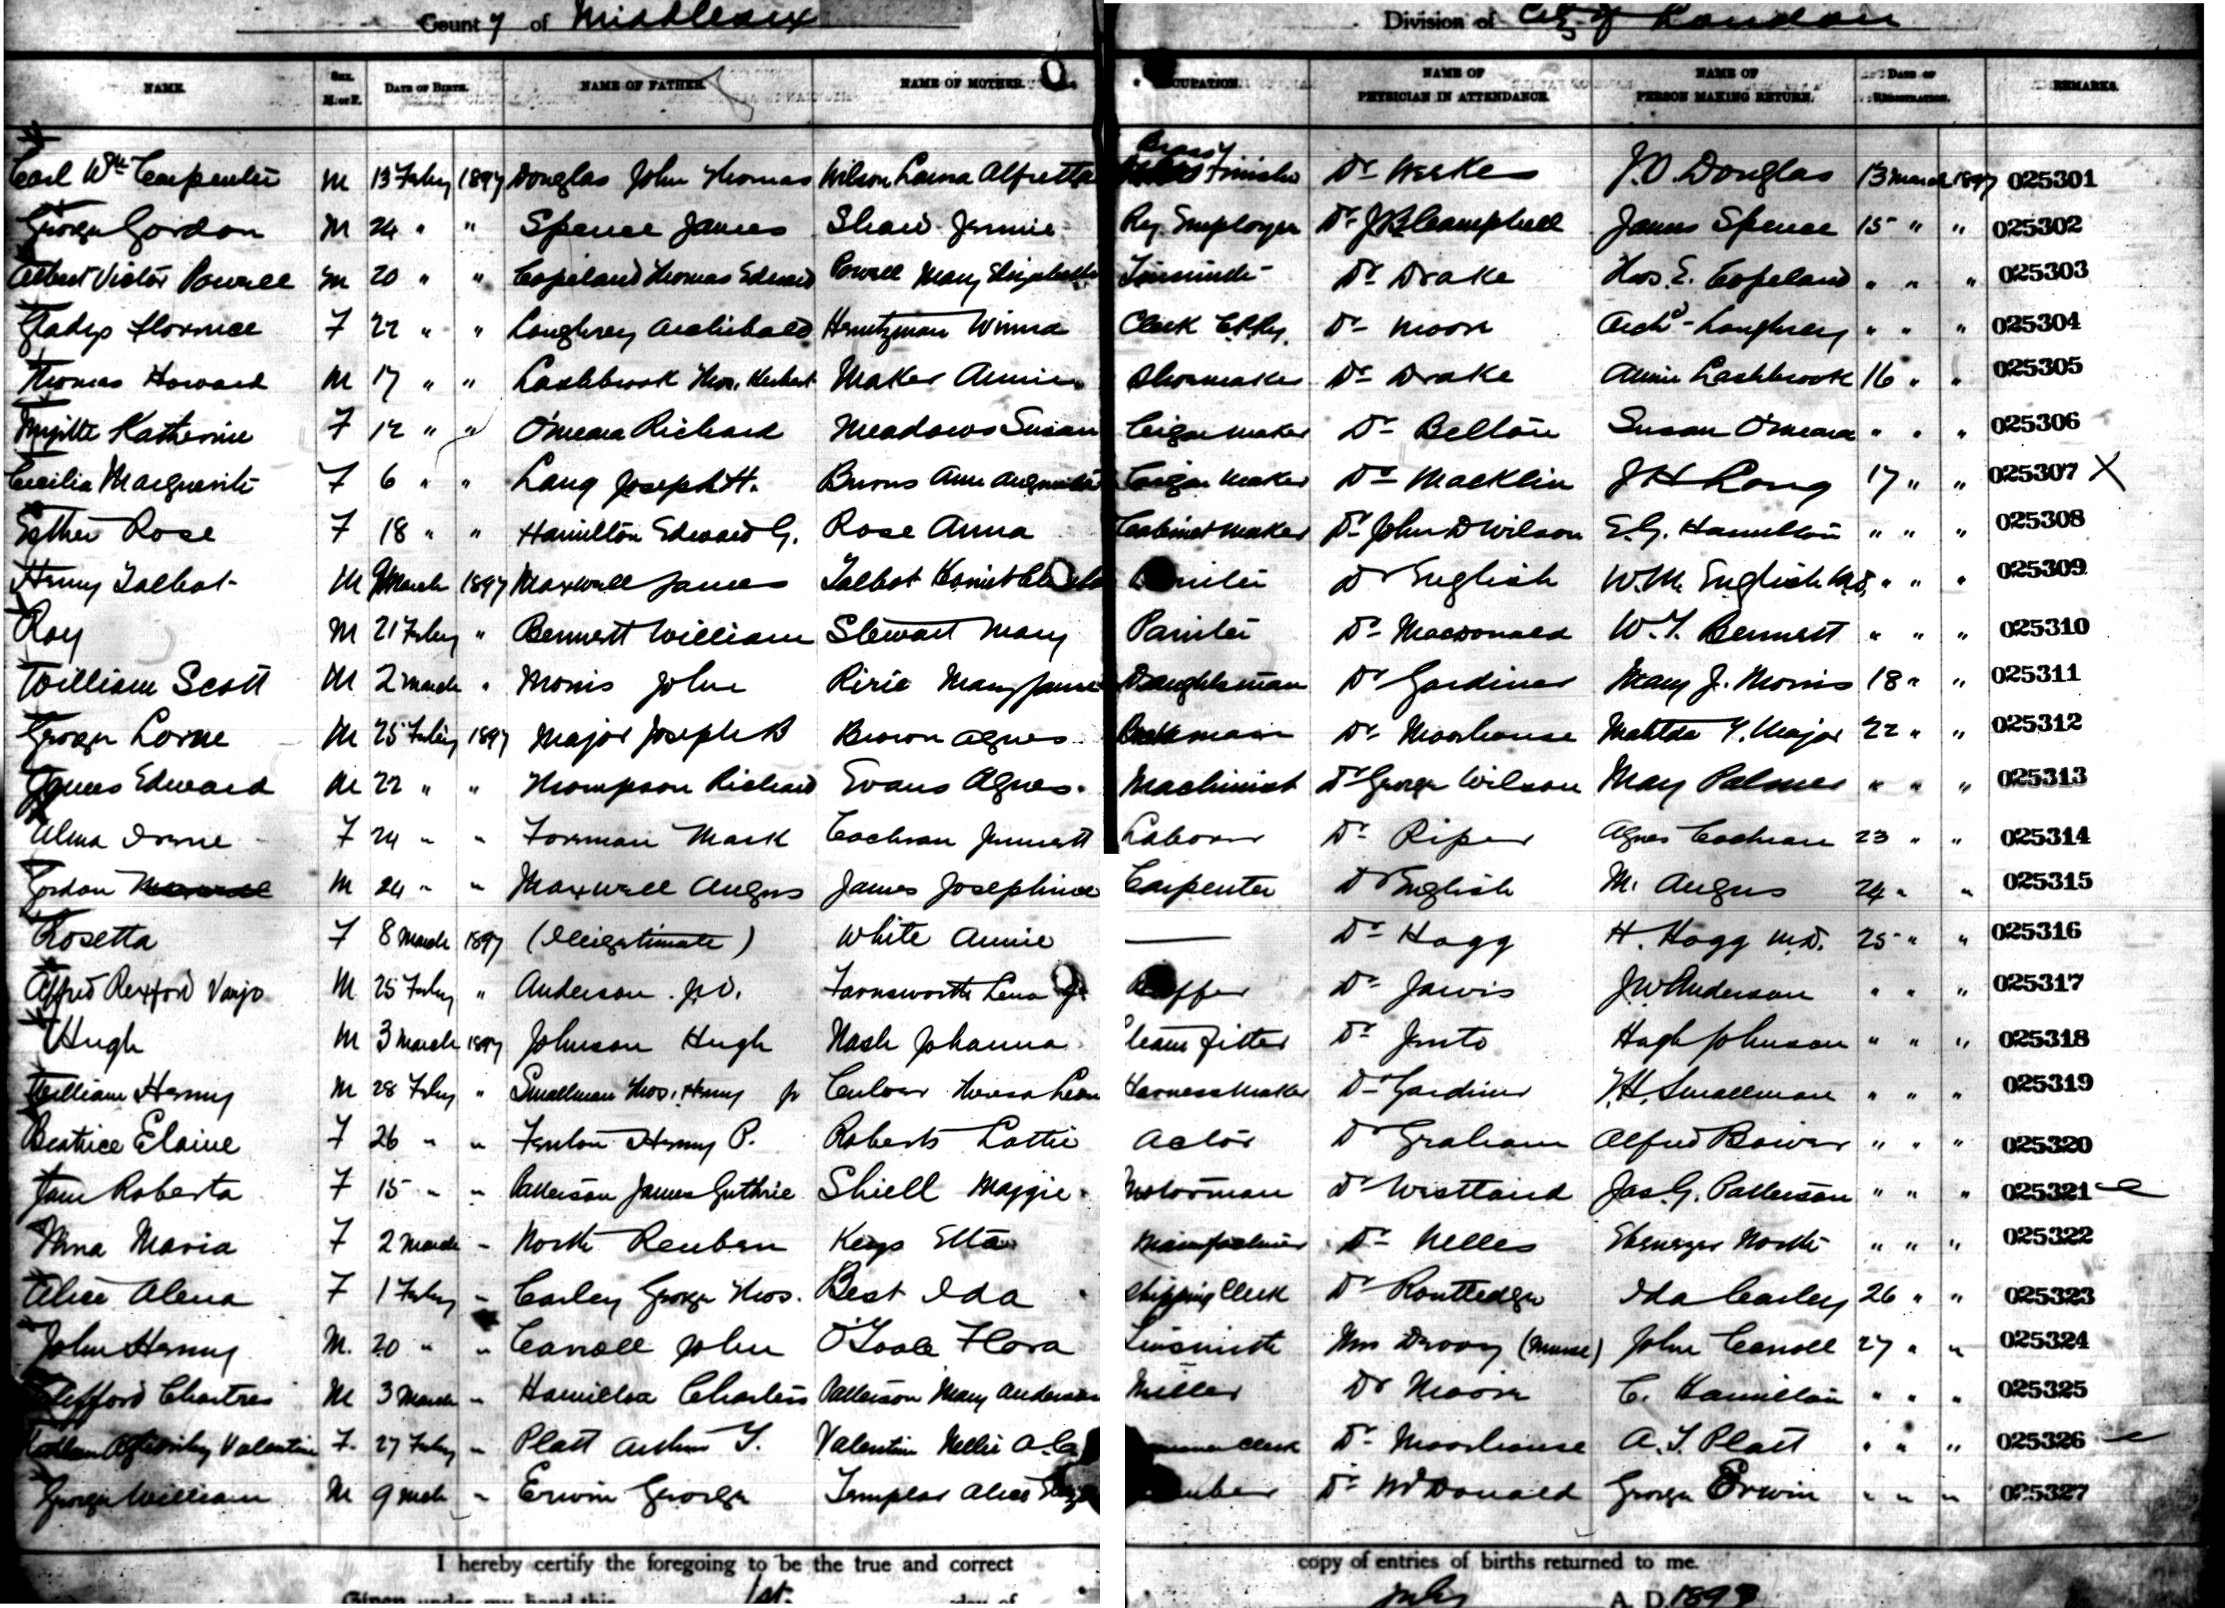 County of Middlesex Division of City of London
NAME. Sex. M. or F. DATE OF BIRTH. NAME OF FATHER. NAME OF MOTHER. OCCUPATION. NAME OF PHYSICIAN IN ATTENDANCE. NAME OF PERSON MAKING RETURN. DATE OF REGISTRATION. REMARKS.
Carl Wm Carpenter M 13 Feby 1897 Douglas John Thomas Wilson Lorna Alfretta Brass Finisher Dr Weekes J.D. Douglas 13 March 1897 025301
George Gordon M 24 " " Spence James Shaw Jennie Ry. Employee Dr J B Campbell James Spence 15 " " 025302
Albert Victor Powell M 20 " " Copeland Thomas Edward Powell Mary Elizabeth Tinsmith Dr Drake Thos. E. Copeland " " " 025303
Gladys Florence F 22 " " Loughrey Archibald Heintzman Winna Clerk C.P.Ry. Dr Moore Archd Loughrey " " " 025304
Thomas Howard M 17 " " Lashbrook Thos. Herbert Maker Annie Shoemaker Dr Drake Annie Lashbrook 16 " " 025305
Katherine F 12 " " O'Meara Richard Meadows Susan Cigar Maker Dr Belton Susan O'Meara " " " 025306
Cecilia Marguerite F 6 " " Lang Joseph H. Burns Ann Cigar Maker Dr Macklin J H Lang 17 " " 025307 X
Esther Rose F 18 " " Hamilton Edward G. Rose Anna Cabinet Maker Dr John D Wilson E. G. Hamilton " " " 025308
Henry Talbot M 9 March 1897 Maxwell James Talbot Harriet Dr English W.M. English M.D. " " " 025309
Roy M 21 Feby " Bennett William Stewart Mary Painter Dr Macdonald W. T. Bennett " " " 025310
William Scott M 2 March " Morris John Ririe Mary Jane Draughtsman Dr Gardiner Mary J. Morris 18 " " 025311
George Lorne M 25 Feby 1897 Major Joseph B Brown Agnes Dr Moorhouse Matilda Y. Major 22 " " 025312
James Edward M 22 " " Thompson Richard Evans Agnes. Machinist Dr George Wilson Mary Palmer " " " 025313
Alma Irene F 24 " " Forman Mark Cochran Jennett Laborer Dr Piper Agnes Cochran 23 " " 025314
Gordon M 24 " " Maxwell Angus James Josephine Carpenter Dr English M. Angus 24 " " 025315
Rosetta F 8 March 1897 (Illegitimate) White Annie — Dr Hogg H. Hogg M.D. 25 " " 025316
Alfred Rexford Vanjo M 25 Feby " Anderson J.W. Farnsworth Lena Dr Jarvis J W Anderson " " " 025317
Hugh M 3 March 1897 Johnson Hugh Nash Johanna Steam Fitter Dr Jento Hugh Johnson " " " 025318
William Henry M 28 Feby " Smallman Thos. Henry jr Culver Theresa Leon Harness Maker Dr Gardiner T.H. Smallman " " " 025319
Beatrice Elaine F 26 " " Fenton Henry P. Roberts Lottie Actor Dr Graham Alfred Bower " " " 025320
Jane Roberta F 15 " " Patterson James Guthrie Shiell Maggie Motorman Dr Westland Jas. G. Patterson " " " 025321
Anna Maria F 2 March " North Reuben Keys Etta Manufacturer Dr Nelles Ebenezer North " " " 025322
Alice Alena F 1 Feby " Carley George Thos. Best Ida Shipping Clerk Dr Routledge Ida Carley 26 " " 025323
John Henry M. 20 " " Carroll John O'Toole Flora Tinsmith Mrs Drory (Nurse) John Carroll 27 " " 025324
Clifford Chartres M 3 March " Hamilton Charles Patterson Mary Anderson Miller Dr Moore C. Hamilton " " " 025325
Valentine F. 27 Feby " Platt Arthur T. Valentine Nellie Clerk Dr Moorhouse A. T. Platt " " " 025326
George William M 9 Mch " Erwin George Templar Alice Dr McDonald George Erwin " " " 025327
I hereby certify the foregoing to be the true and correct copy of entries of births returned to me.
Given under my hand this 1st. day of July A. D. 1897